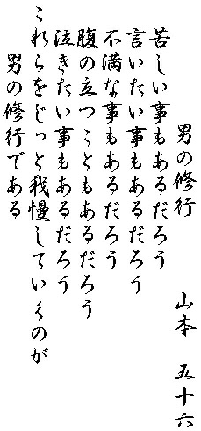 男の修行
山本 五十六
苦しい事もあるだろう
言いたい事もあるだろう
不満な事もあるだろう
腹の立つこともあるだろう
泣きたい事もあるだろう
これらをじっと我慢していくのが
男の修行である